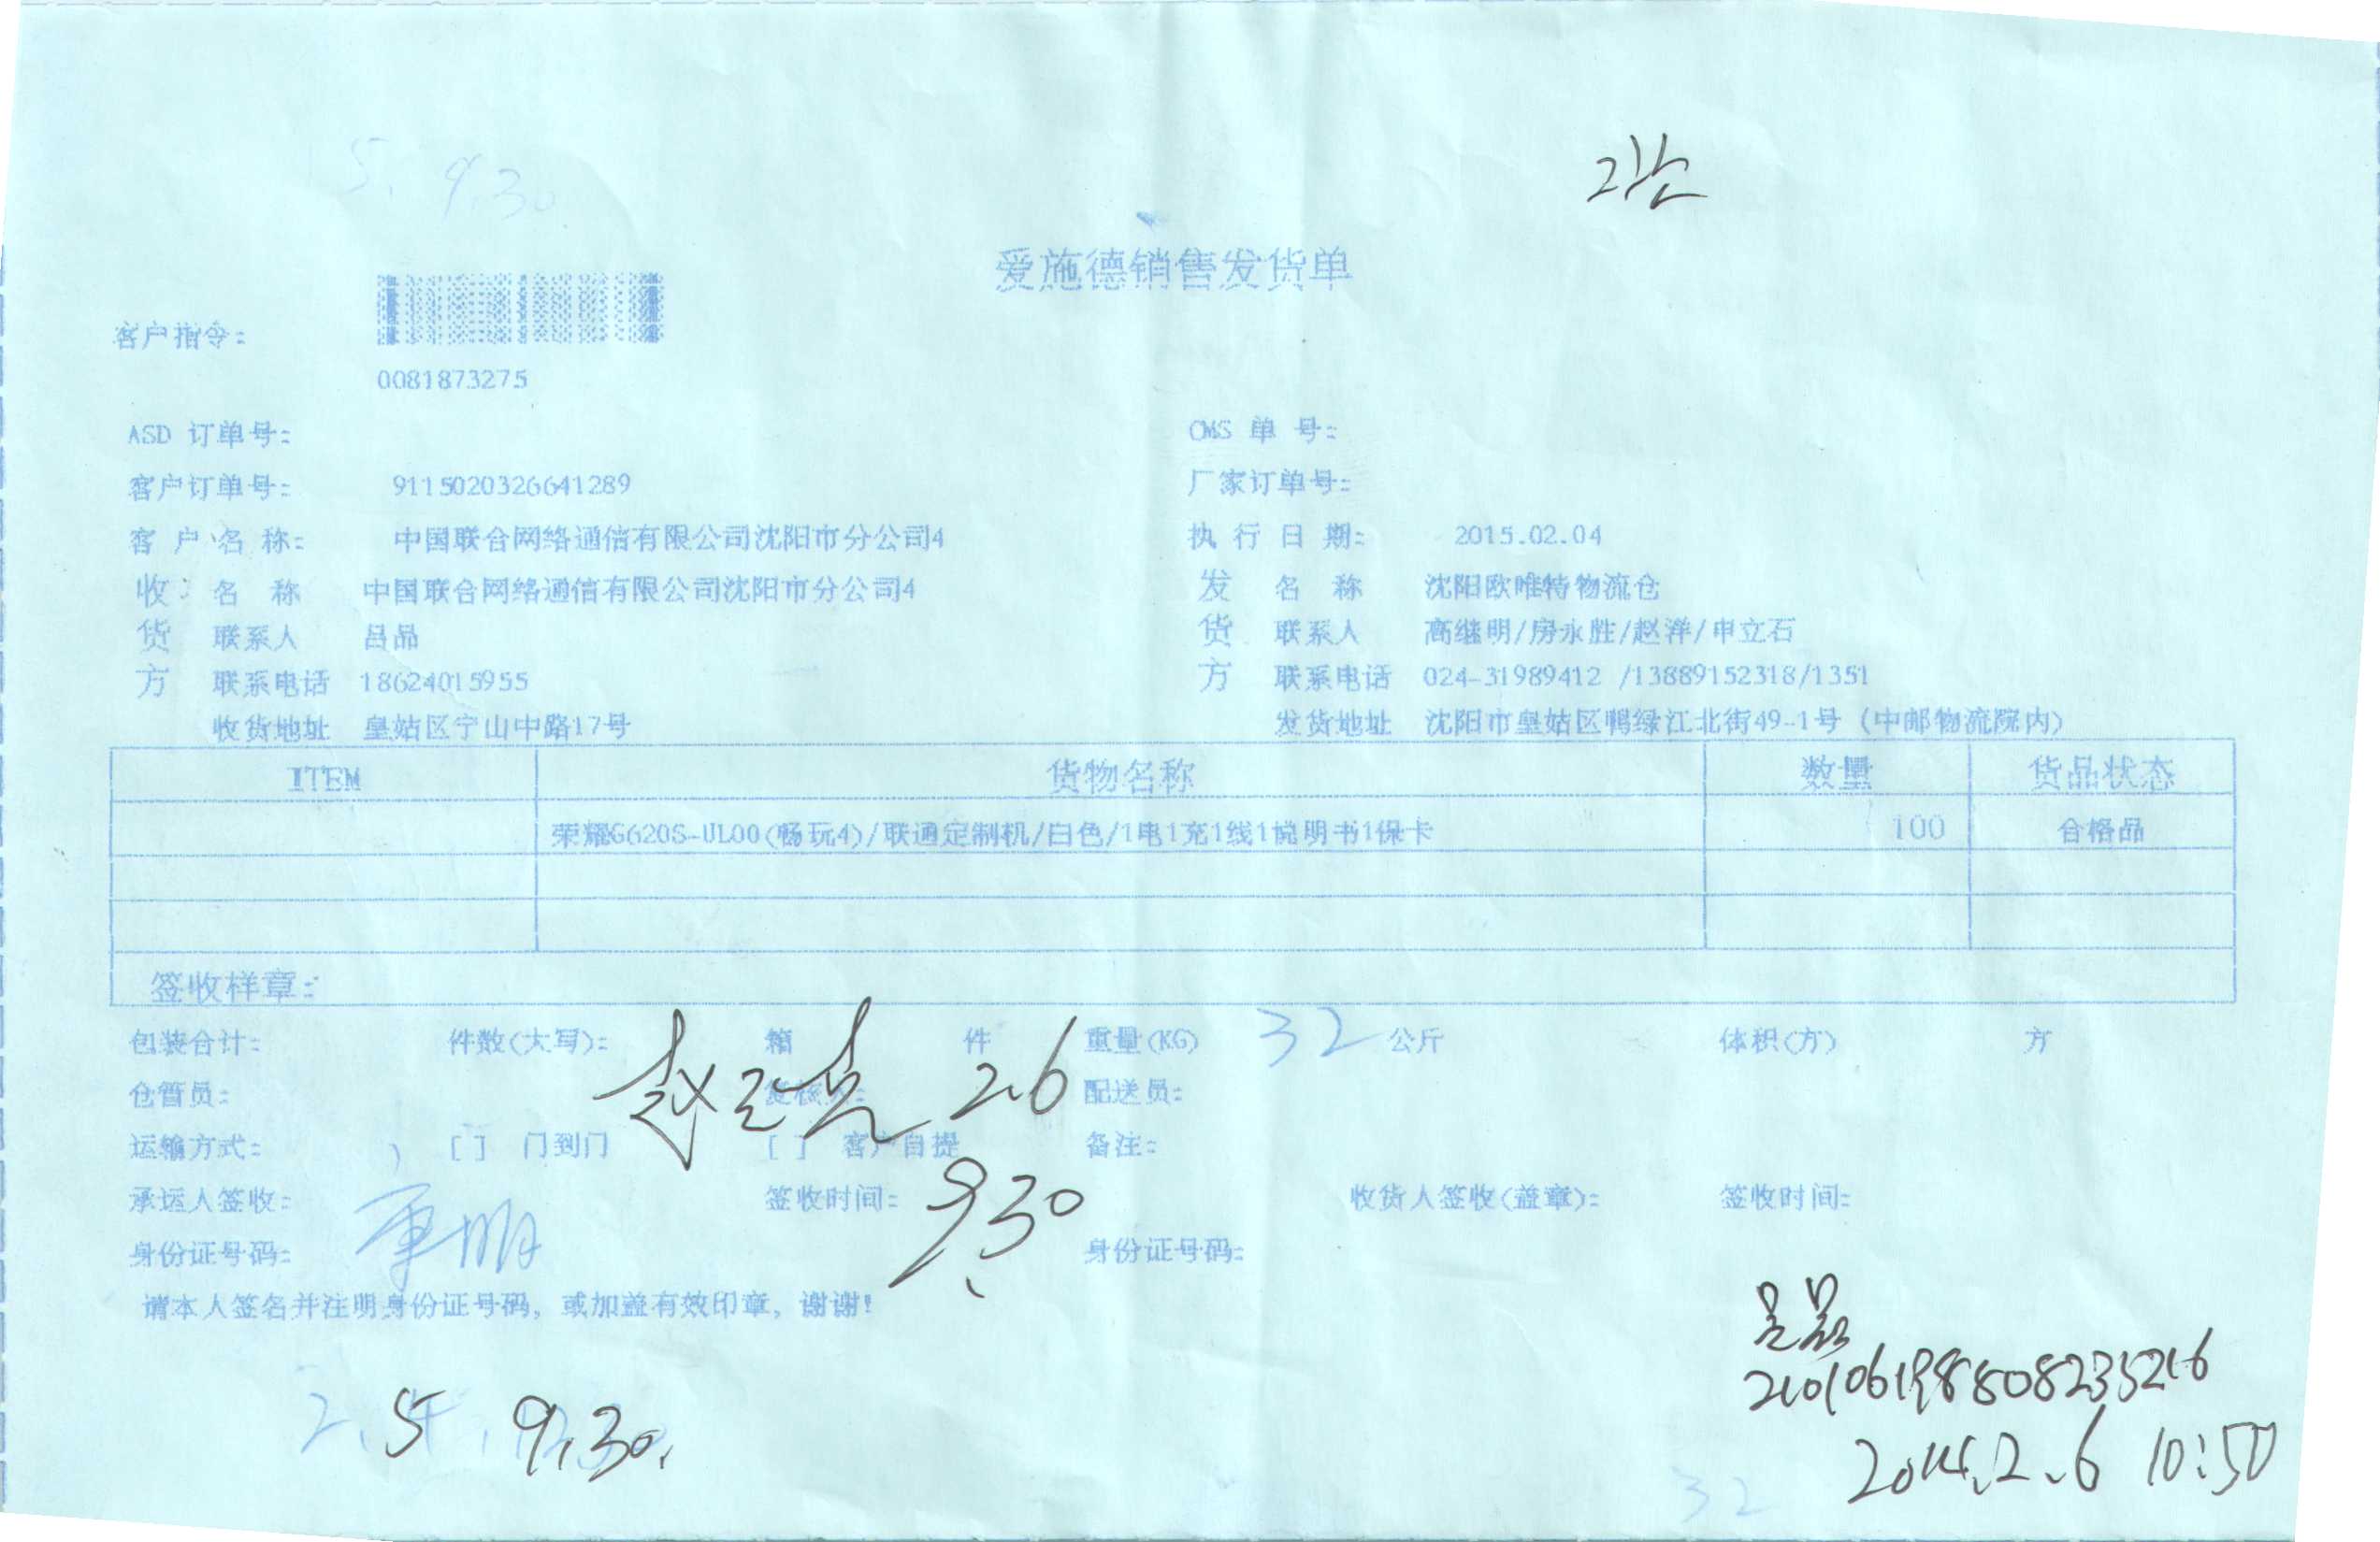 5. 9.30
爱施德销售发货单
客户指令:
0081873275
ASD 订单号: CMS 单 号:
客户订单号: 9115020326641289 厂家订单号:
客 户 名 称: 中国联合网络通信有限公司沈阳市分公司4 执 行 日 期: 2015.02.04
收 名 称 中国联合网络通信有限公司沈阳市分公司4 发 名 称 沈阳欧唯特物流仓
货 联系人 吕品 货 联系人 高继明/房永胜/赵洋/申立石
方 联系电话 18624015955 方 联系电话 024-31989412 /13889152318/1351
收货地址 皇姑区宁山中路17号 发货地址 沈阳市皇姑区鸭绿江北街49-1号 (中邮物流院内)
ITEM 货物名称 数量 货品状态
荣耀G620S-UL00(畅玩4)/联通定制机/白色/1电1充1线1说明书1保卡 100 合格品
签收样章:
包装合计: 件数(大写): 箱 件 重量(KG) 32 公斤 体积(方) 方
仓管员: 复核人: 2.6 配送员:
运输方式: [ ] 门到门 [ ] 客户自提 备注:
承运人签收: 签收时间: 9.30 收货人签收(盖章): 签收时间:
身份证号码: 身份证号码:
请本人签名并注明身份证号码, 或加盖有效印章, 谢谢!
210106198808235216
5 9.30.
2014.2.6 10:50
32